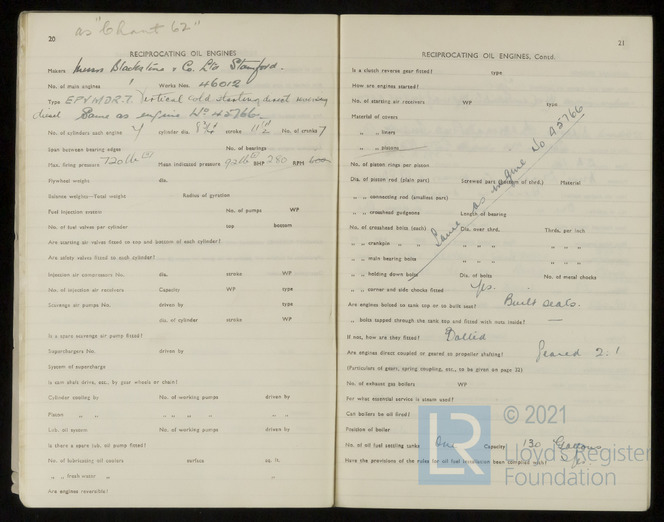 as "Chant 62"
20
RECIPROCATING OIL ENGINES
Makers Messrs Blackstone & Co. Ltd Stamford.
No. of main engines 1 Works Nos. 46012
Type EPVMDR.7. Vertical cold starting direct reversing
diesel Same as engine No 45766
No. of cylinders each engine 7 cylinder dia. 8 3/4 stroke 11 1/2 No. of cranks 7
Span between bearing edges No. of bearings
Max. firing pressure 720 lb Mean indicated pressure 92 lb BHP 280 RPM 600
Flywheel weight dia.
Balance weights—Total weight Radius of gyration
Fuel injection system No. of pumps WP
No. of fuel valves per cylinder top bottom
Are starting air valves fitted to top and bottom of each cylinder?
Are safety valves fitted to each cylinder?
Injection air compressors No. dia. stroke WP
No. of injection air receivers Capacity WP type
Scavenge air pumps No. driven by type
dia. of cylinder stroke WP
Is a spare scavenge air pump fitted?
Superchargers No. driven by
System of supercharge
Is cam shaft drive, etc., by gear wheels or chain?
Cylinder cooling by No. of working pumps driven by
Piston " " " "
Lub. oil system No. of working pumps driven by
Is there a spare lub. oil pump fitted?
No. of lubricating oil coolers surface sq. ft.
" " fresh water " "
Are engines reversible?
21
RECIPROCATING OIL ENGINES, Contd.
Is a clutch reverse gear fitted? type
How are engines started?
No. of starting air receivers WP type
Material of covers
" " liners
" " pistons
No. of piston rings per piston
Dia. of piston rod (plain part) Screwed part (bottom of thrd.) Material
" " connecting rod (smallest part)
" " crosshead gudgeons Length of bearing
No. of crosshead bolts (each) Dia. over thrd. Thrds. per inch
" " crankpin " " " " " "
" " main bearing bolts " " " "
" " holding down bolts Dia. of bolts No. of metal chocks
Same as engine No 45766
" " corner and side chocks fitted Yes.
Are engines bolted to tank top or to built seat? Built seats.
" bolts tapped through the tank top and fitted with nuts inside? —
If not, how are they fitted? Bolted
Are engines direct coupled or geared to propeller shafting? Geared 2:1
(Particulars of gears, spring coupling, etc., to be given on page 22)
No. of exhaust gas boilers WP
For what essential service is steam used?
Can boilers be oil fired?
Position of boiler
No. of oil fuel settling tanks One Capacity 130 Gallons
Have the provisions of the rules for oil fuel installation been complied with? Yes
© 2021
LR
Lloyd's Register
Foundation